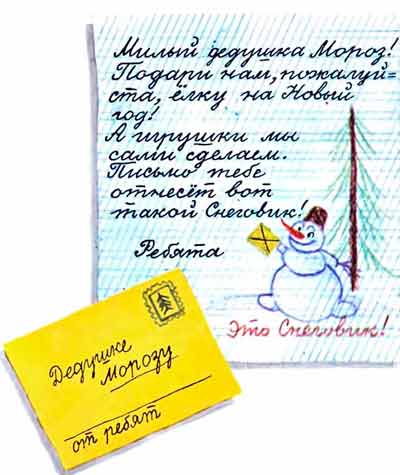 Милый дедушка Мороз!
Подари нам, пожалуй=
ста, ёлку на Новый
год!
А игрушки мы
сами сделаем.
Письмо тебе
отнесёт вот
такой Снеговик!
Ребята
Это Снеговик!
Дедушке
Морозу
от ребят